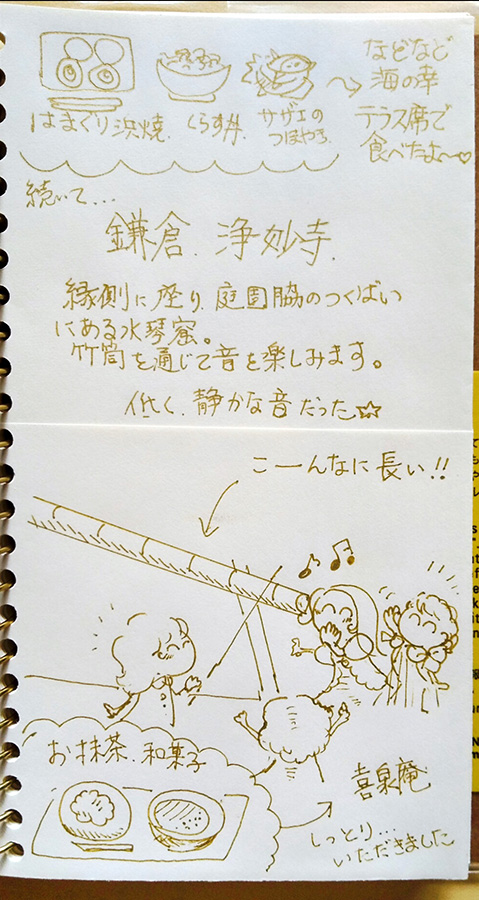 はまぐり浜焼.
しらす丼.
サザエの
つぼやき.
などなど
海の幸
テラス席で
食べたよ〜♡
続いて...
鎌倉.浄妙寺.
縁側に座り.庭園脇のつくばい
にある水琴窟。
竹筒を通じて音を楽しみます。
低く.静かな音だった☆
こーんなに長い!!
お抹茶.和菓子
喜泉庵
しっとり...
いただきました